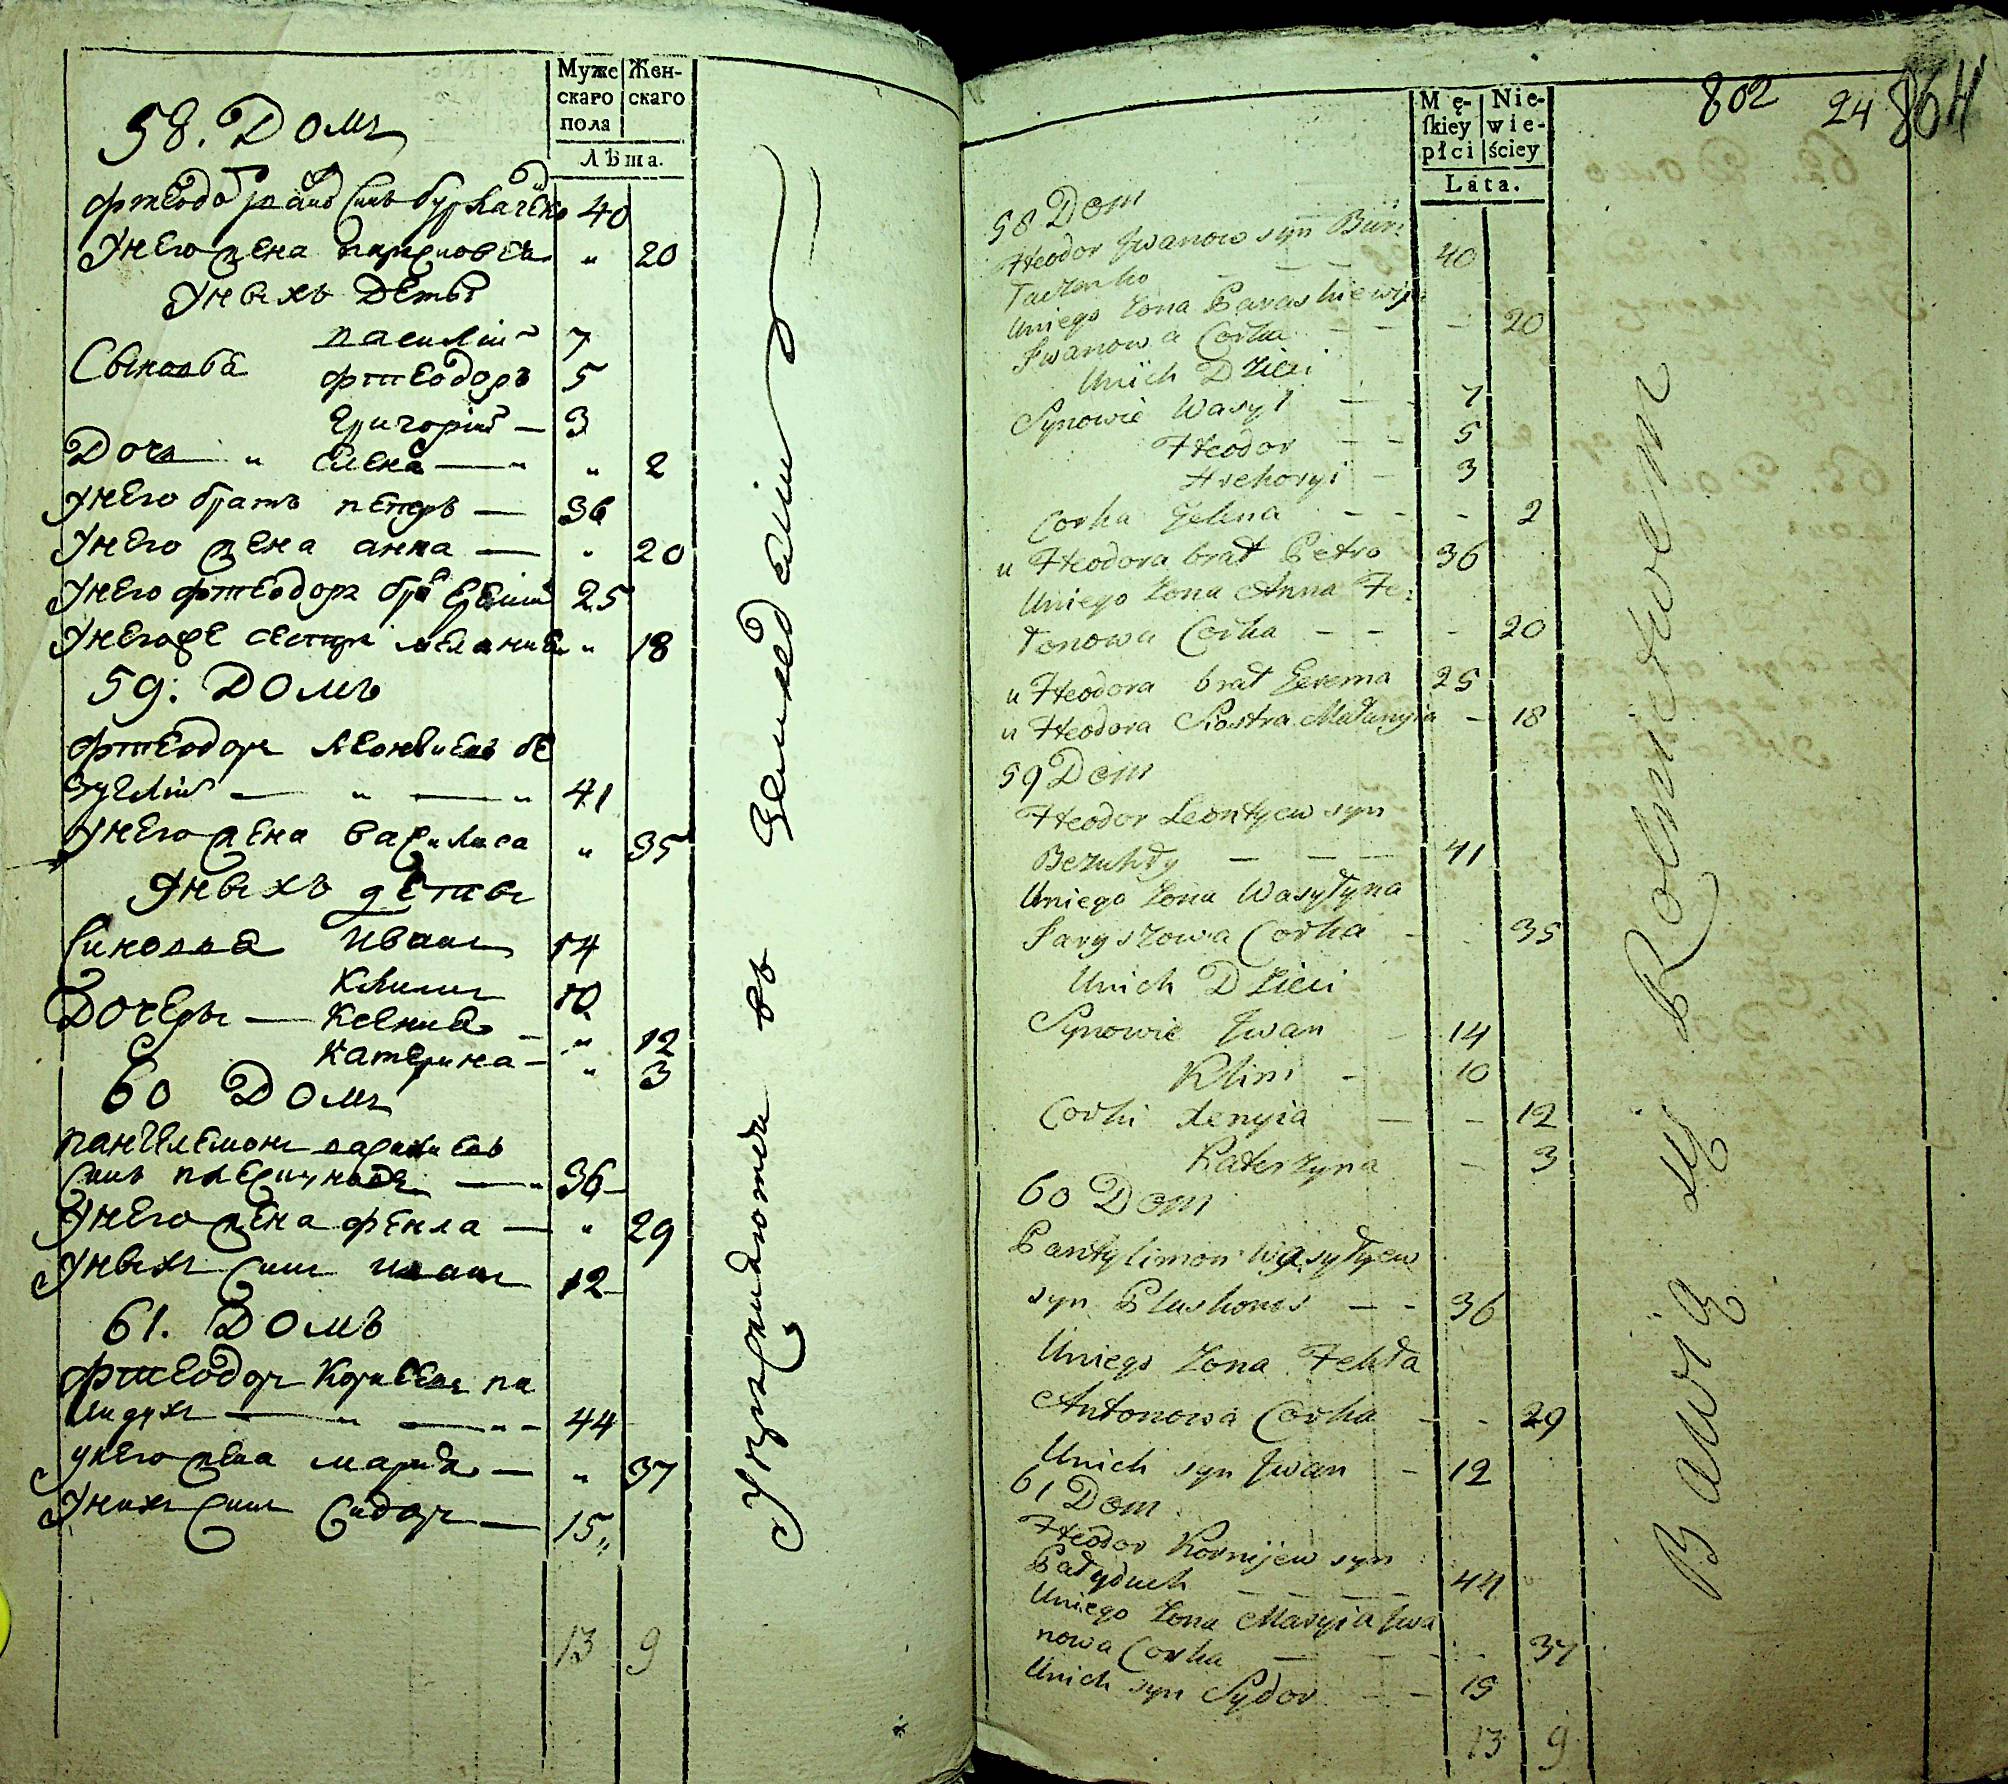 Муже
скаго
пола
Жен-
скаго
Лѣта.
58. Домъ
Фтеодоръ Ивановъ Синъ Буртаченко 40
Унего жена парасковея " 20
Унвихъ Деты
Сыновья василій 7
фтеодоръ 5
Григорій — 3
Дочь " Елена — " " 2
Унего братъ петръ — 36
Унего жена анна — " 20
Унего фтеодора бра Еремій 25
Унегоже сестра мелания " 18
59. Домъ
Фтеодоръ Леонтиевъ бе
зуглій — " — " 41
Унего жена василиса " 35
Унвихъ дети
Синовья Иванъ 14
Климъ 10
Дочеры — Ксения — " 12
Катерина — " 3
60 Домъ
пантелемонъ василиевъ
Синъ — " 36
Унего жена фекла — " 29
Унвихъ Синъ иванъ 12
61. Домъ
Фтеодоръ Корниевъ па
лидухъ — " — " 44
унего жена мария — " 37
Унихъ Синъ Сидоръ — 15 "
13 9
Упражняются въ земледелии
802 24 864
Mę-
ſkiey
płci
Nie-
wie-
ściey
Lata.
58 Dom
Fteodor Jwanow syn Bur:
taczenko — — — 40
Uniego Zona Paraskiewija
Jwanowa Corka — — — 20
Unich Dzieci
Synowie Wasyl — — 7
Fteodor — — 5
Hrehoryi — 3
Corka Jelena — — - 2
u Fteodora brat Petro 36
Uniego Zona Anna Fe:
tonowa Corka — — - 20
u Fteodora brat Jerema 25
u Fteodora Siostra Małanyia — 18
59 Dom
Fteodor Leontyew syn
Bezuhły — — — 41
Uniego Zona Wasyłyna
Corka - - 35
Unich Dzieci
Synowie Jwan - 14
Klim - 10
Corki Xenyia — - 12
Katerzyna — 3
60 Dom
Pantylimon Wasyłyew
syn — - 36
Uniego Zona Fekła
Antonowa Corka — - 29
Unich syn Jwan - 12
61 Dom
Fteodor Kornijew syn
Pałyduch — — — 44
Uniego Zona Maryia Jwa
nowa Corka — — - - 37
Unich syn Sydor — — 15
13 9
Bawią się Rolnictwem